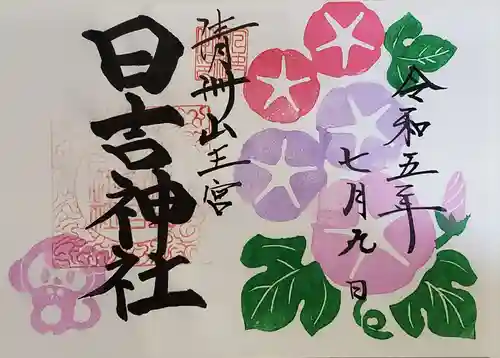 令和五年
七月九日
清洲山王宮
日吉神社